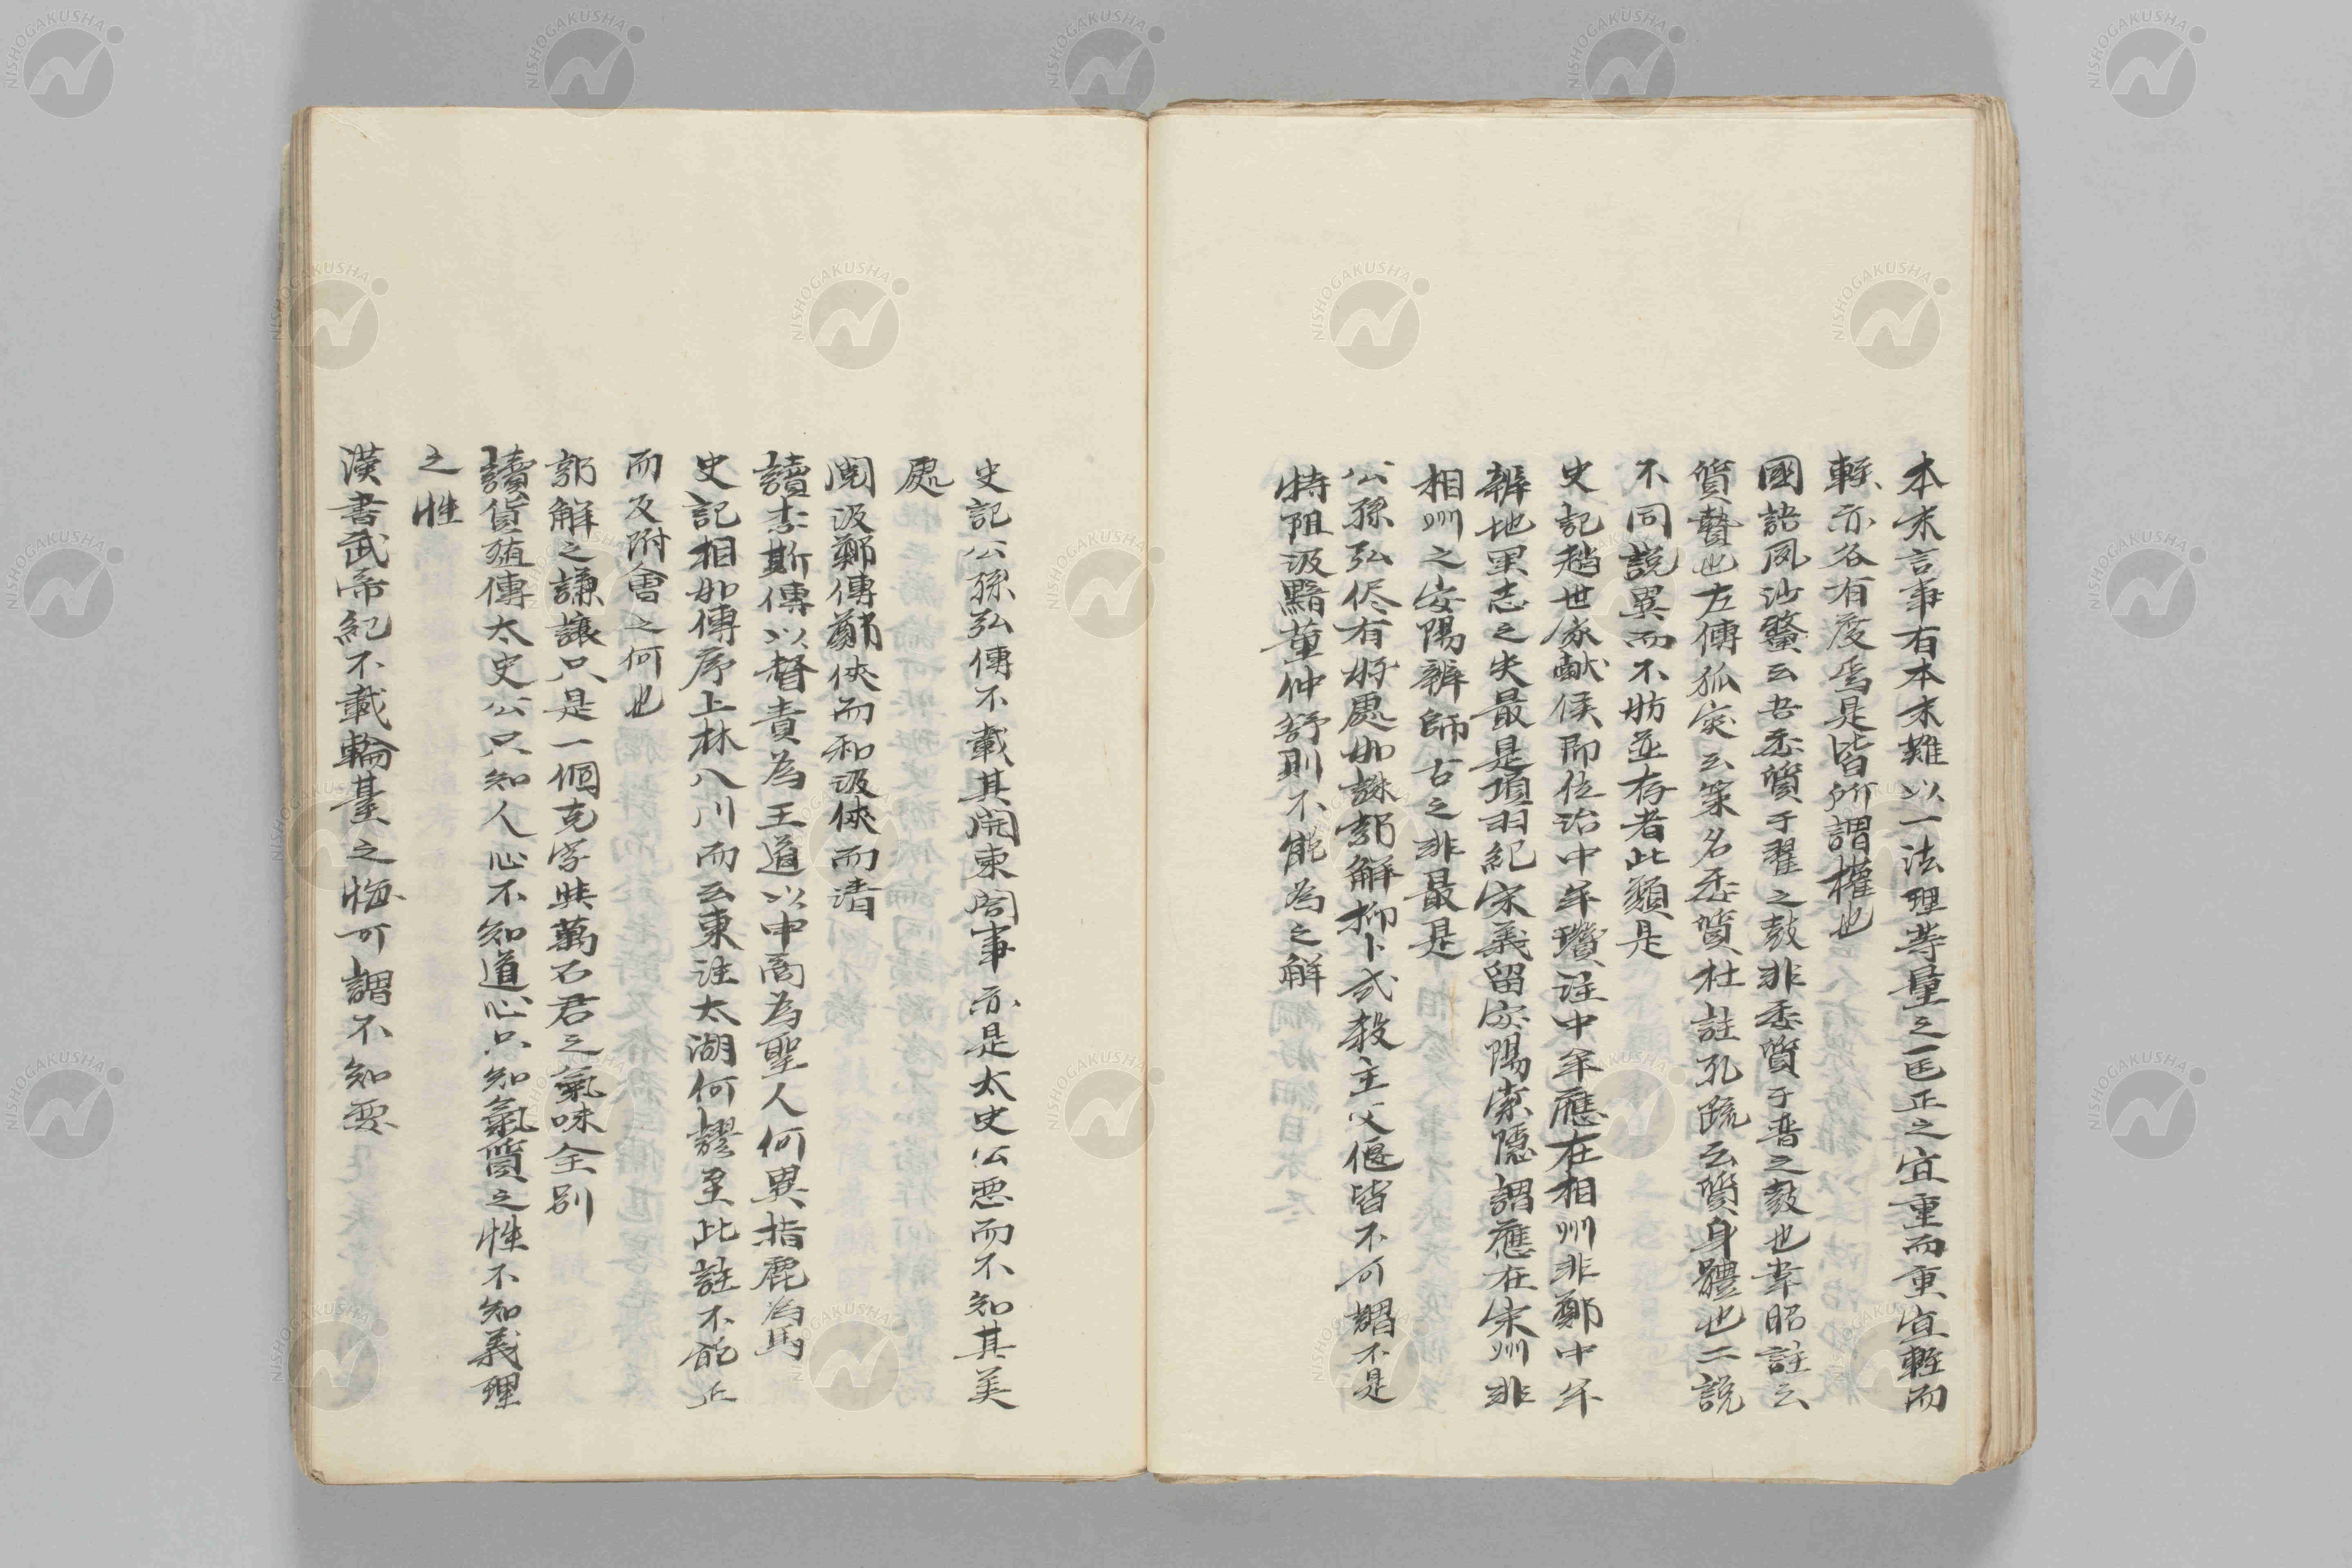 本末言事有本末難以一法理等量之匡正之宜重而重宜輕而
輕亦各有度焉是皆所謂權也
國語夙沙釐云吾委質于翟之鼓非委質于晋之鼓也韋昭註云
質贄也左傳狐突云策名委質杜註孔疏云質身體也二説
不同説異而不妨並存者此類是
史記趙世家獻侯即位治中牟瓚注中牟應在相州非鄭中牟
辨地里志之失最是項羽紀宋義留安陽索隱謂應在宋州非
相州之安陽辨師古之非最是
公孫弘侭有好處如誅郭解抑卜式殺主父偃皆不可謂不是
特阻汲黯董仲舒則不能為之解
史記公孫弘傳不載其開東閤事亦是太史公惡而不知其美
處
閲汲鄭傳鄭俠而和汲俠而清
讀李斯傳以督責為王道以申商為聖人何異指鹿為馬
史記相如傳序上林八川而云東注太湖何謬至此註不能正
而反附會之何也
郭解之謙讓只是一個克字與萬石君之氣味全別
讀貨殖傳太史公只知人心不知道心只知氣質之性不知義理
之性
漢書武帝紀不載輪臺之悔可謂不知要
NISHOGAKUSHA